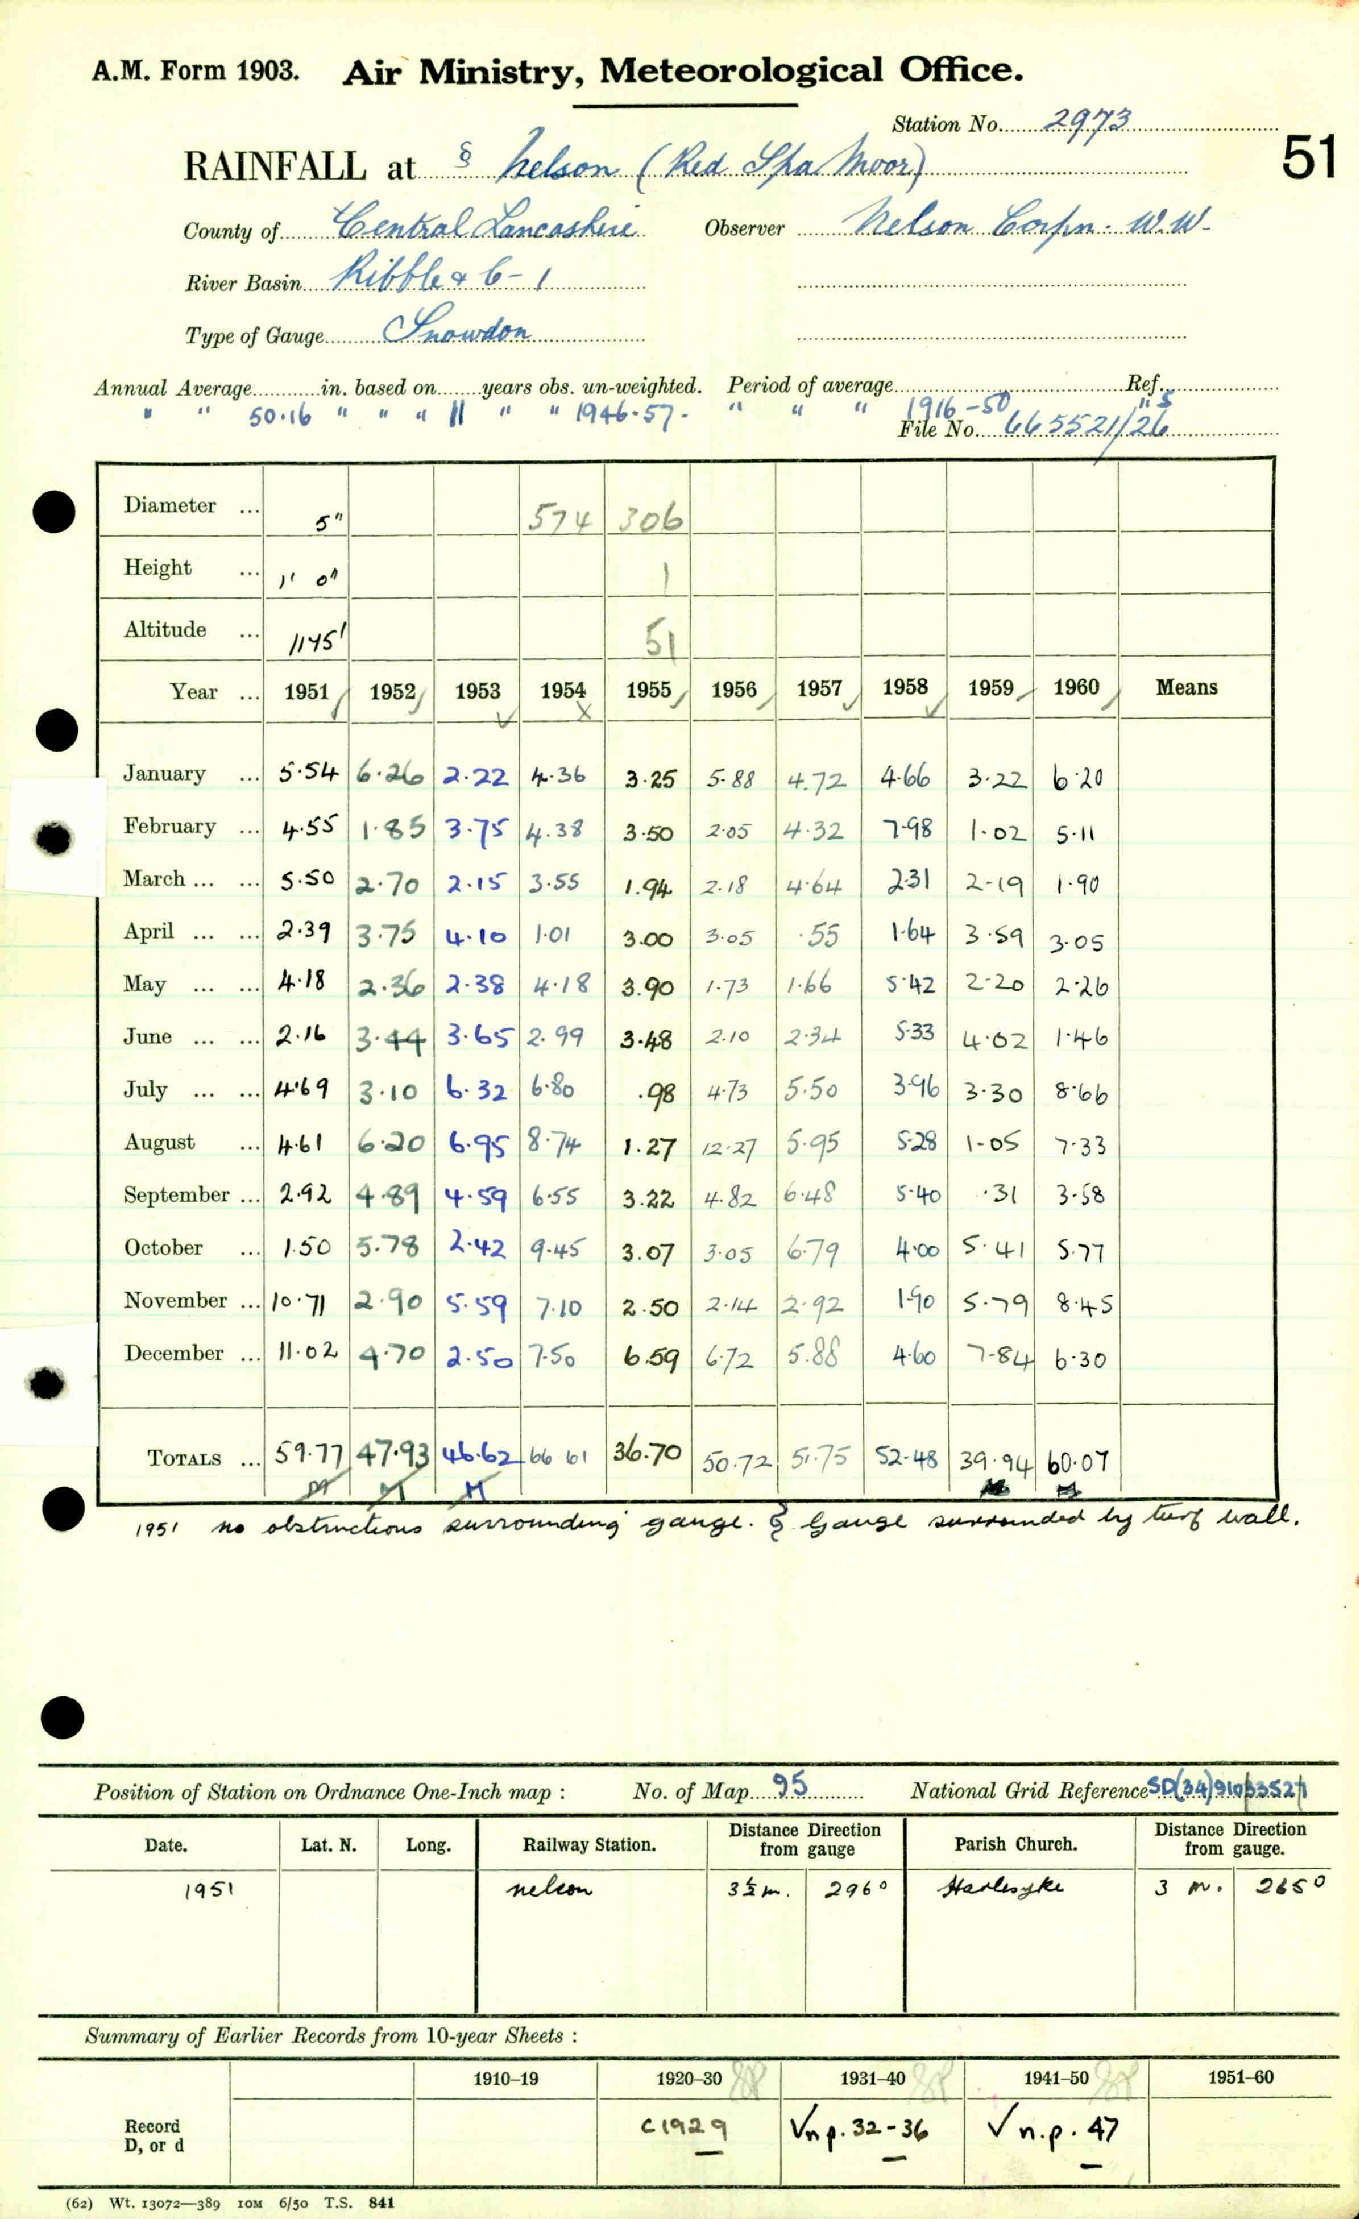 A.M. Form 1903. Air Ministry, Meteorological Office.
Station No. 2973
51
RAINFALL at § Nelson (Red Spa Moor)
County of Central Lancashire Observer Nelson Corpn. W.W.
River Basin Ribble & C-1
Type of Gauge Snowdon
Annual Average in. based on years obs. un-weighted. Period of average Ref.
" " 50.16 " " " 11 " " 1946-57. " " " 1916-50 " 5
File No. 665521/26
Diameter ... 5" 574 306
Height ... 1' 0" 1
Altitude ... 1145' 51
Year ... 1951 1952 1953 1954 1955 1956 1957 1958 1959 1960 Means
January ... 5.54 6.26 2.22 4.36 3.25 5.88 4.72 4.66 3.22 6.20
February ... 4.55 1.85 3.75 4.38 3.50 2.05 4.32 7.98 1.02 5.11
March ... ... 5.50 2.70 2.15 3.55 1.94 2.18 4.64 2.31 2.19 1.90
April ... ... 2.39 3.75 4.10 1.01 3.00 3.05 .55 1.64 3.59 3.05
May ... ... 4.18 2.36 2.38 4.18 3.90 1.73 1.66 5.42 2.20 2.26
June ... ... 2.16 3.44 3.65 2.99 3.48 2.10 2.34 5.33 4.02 1.46
July ... ... 4.69 3.10 6.32 6.80 .98 4.73 5.50 3.96 3.30 8.66
August ... 4.61 6.20 6.95 8.74 1.27 12.27 5.95 5.28 1.05 7.33
September ... 2.92 4.89 4.59 6.55 3.22 4.82 6.48 5.40 .31 3.58
October ... 1.50 5.78 2.42 9.45 3.07 3.05 6.79 4.00 5.41 5.77
November ... 10.71 2.90 5.59 7.10 2.50 2.14 2.92 1.90 5.79 8.45
December ... 11.02 4.70 2.50 7.50 6.59 6.72 5.88 4.60 7.84 6.30
TOTALS ... 59.77 47.93 46.62 66 61 36.70 50.72 51.75 52.48 39.94 60.07
1951 no obstructions surrounding gauge. & Gauge surrounded by turf wall.
Position of Station on Ordnance One-Inch map : No. of Map 95 National Grid Reference SD(34)910
Date. Lat. N. Long. Railway Station. Distance from Direction gauge Parish Church. Distance from Direction gauge.
1951 Nelson 3½ m. 296° Harlesyke 3 m. 265°
Summary of Earlier Records from 10-year Sheets :
1910–19 1920–30 1931–40 1941–50 1951–60
Record D, or d C1929 √ n.p. 32-36 √ n.p. 47
(62) Wt. 13072—389 10M 6/50 T.S. 841